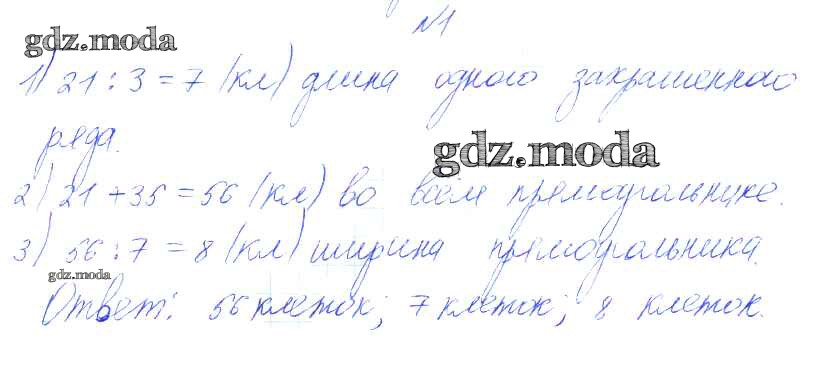 №1
gdz.moda
1) 21 : 3 = 7 (кл) длина одного закрашенного
ряда.
gdz.moda
2) 21 + 35 = 56 (кл) во всём прямоугольнике.
3) 56 : 7 = 8 (кл) ширина прямоугольника.
gdz.moda
Ответ: 56 клеток; 7 клеток; 8 клеток.